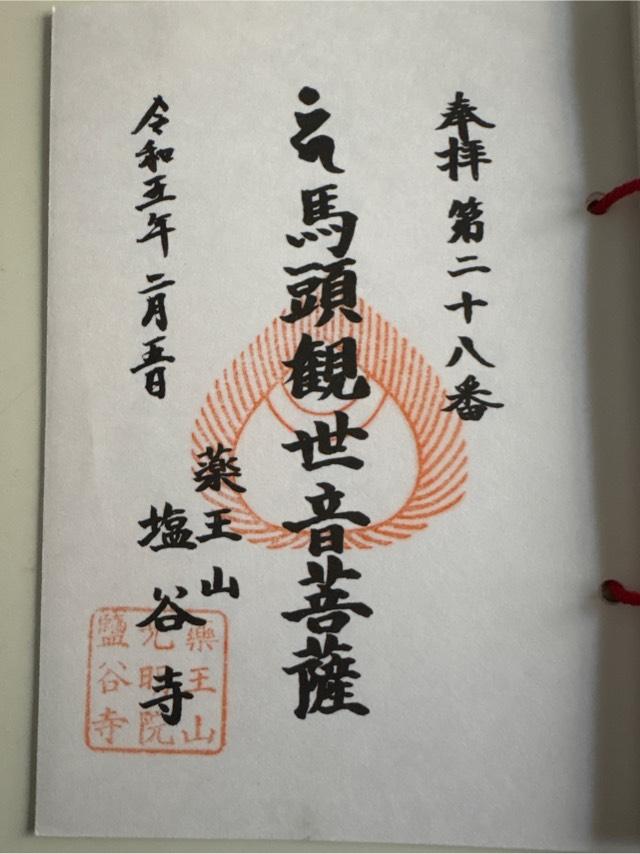 奉拝 第二十八番
馬頭観世音菩薩
薬王山
塩谷寺
令和五年 二月五日
藥王山
光明院
鹽谷寺